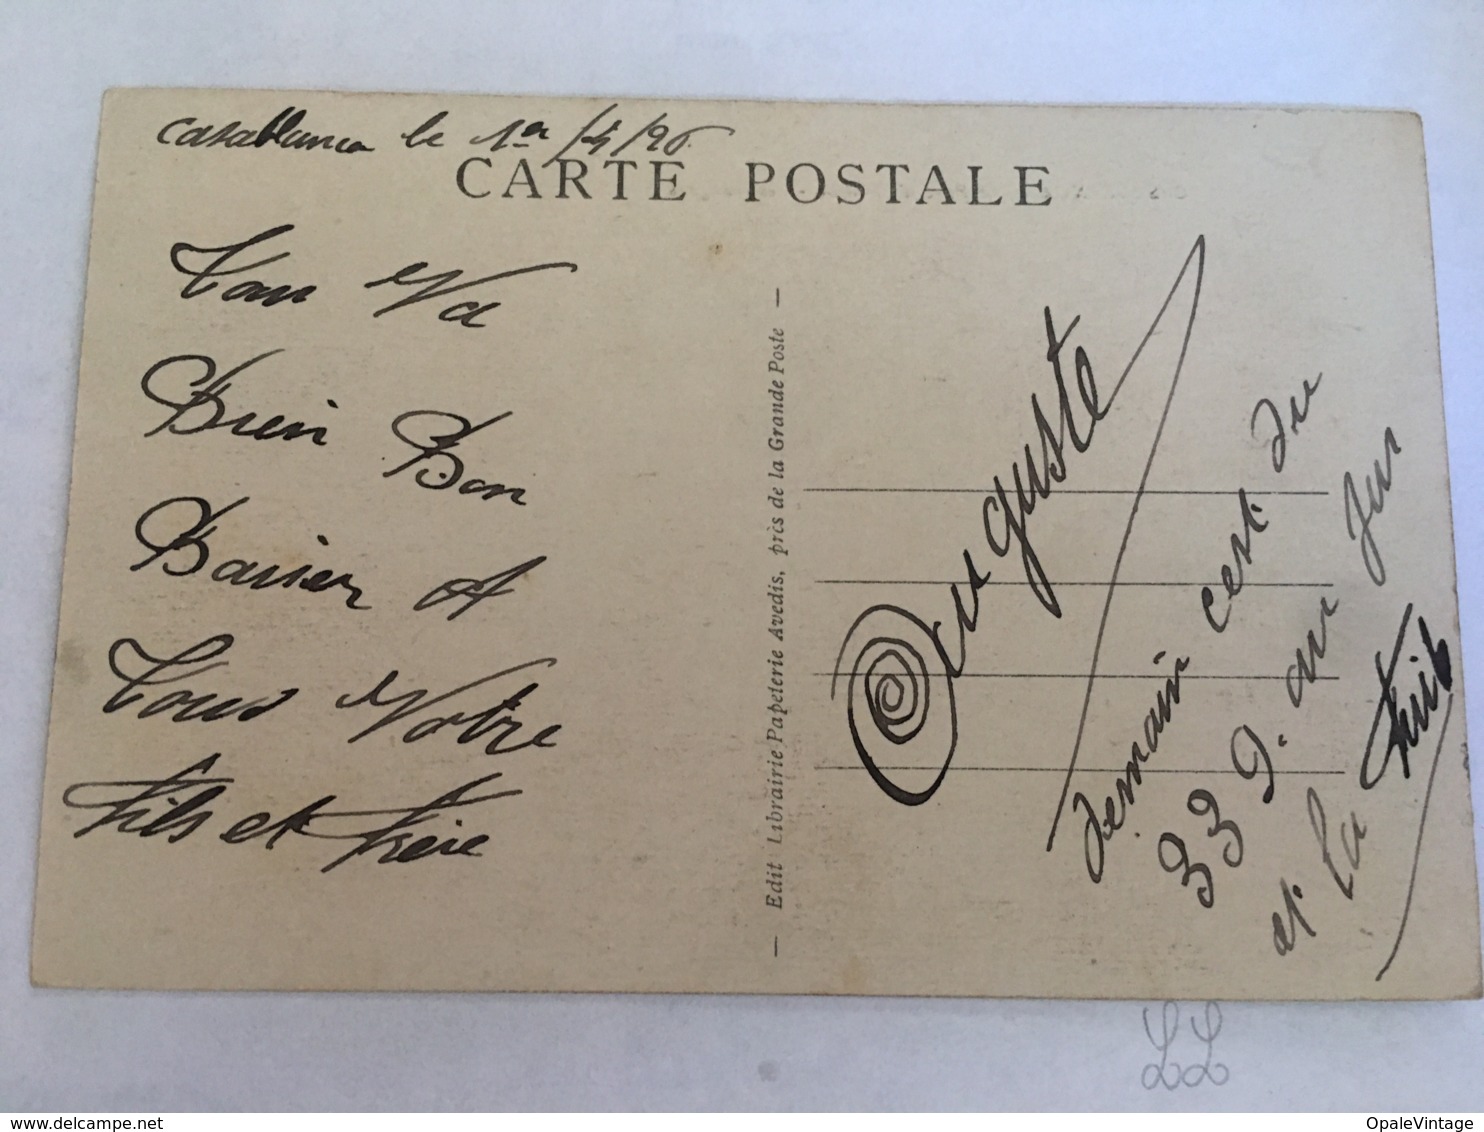 Casablanca le 1er/4/26
CARTE POSTALE
Tou Va
Bien Bon
Baiser A
Tous Votre
Fils et Frère
— Edit Librairie Papeterie Avedis, près de la Grande Poste —
Auguste
demain c'est du
339. au Jus
et la Fuit
LL
www.delcampe.net
OpaleVintage